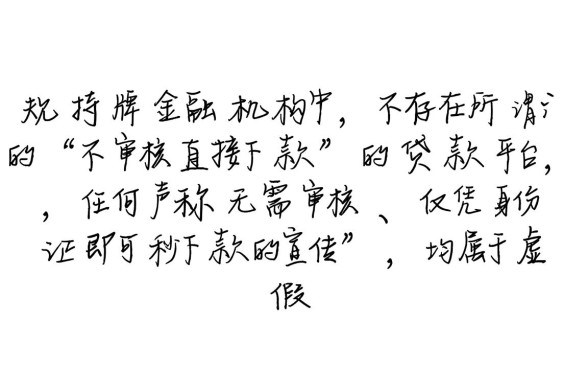 规持牌金融机构中，不存在所谓
的“不审核直接下款”的贷款平台，
，任何声称无需审核、仅凭身份
证即可秒下款的宣传”，均属于虚
假